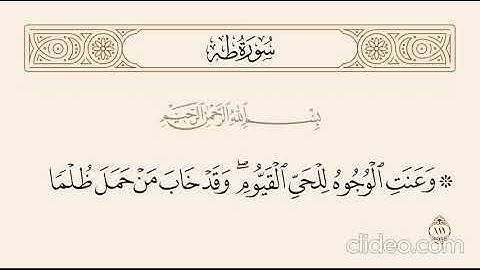 سُورَةُ طه
بِسْمِ اللَّهِ الرَّحْمَٰنِ الرَّحِيمِ
۞ وَعَنَتِ ٱلْوُجُوهُ لِلْحَىِّ ٱلْقَيُّومِ ۖ وَقَدْ خَابَ مَنْ حَمَلَ ظُلْمًا
١١١
clideo.com